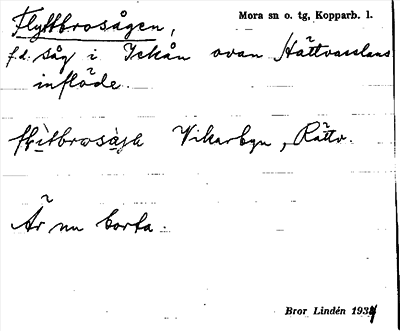 Flyttbrosågen, Mora sn o. tg, Kopparb. l.
f.d. såg i Ickån ovan Hättvasslans
inflöde.
Vikarbyn, Rättv.
Är nu borta.
Bror Lindén 1934